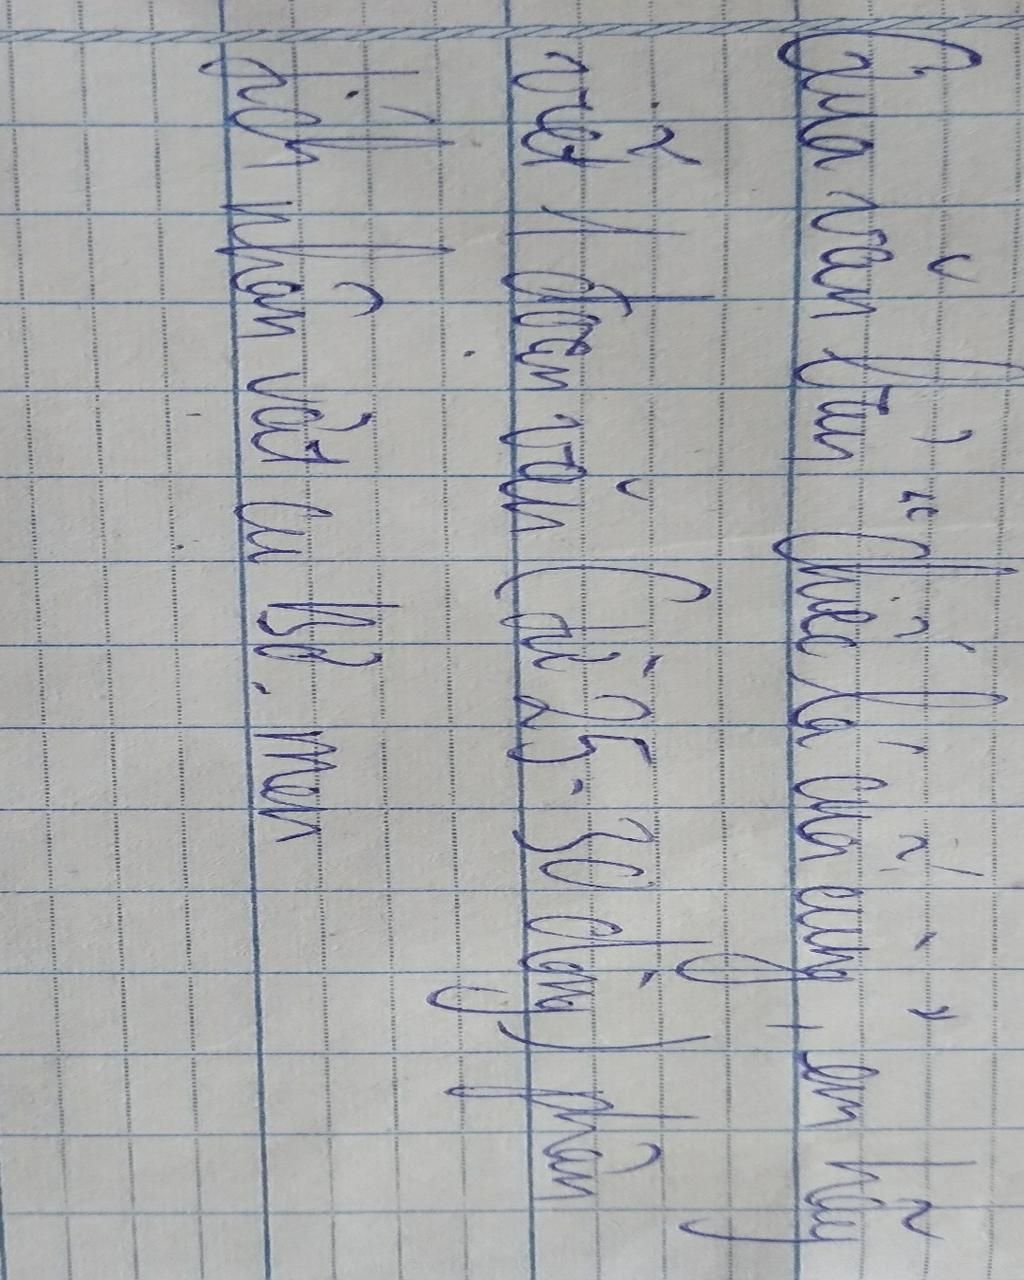 Qua văn bản "Chiếc lá cuối cùng", em hãy
viết 1 đoạn văn (dài 25-30 dòng) phân
tích nhân vật cụ Bơ-men